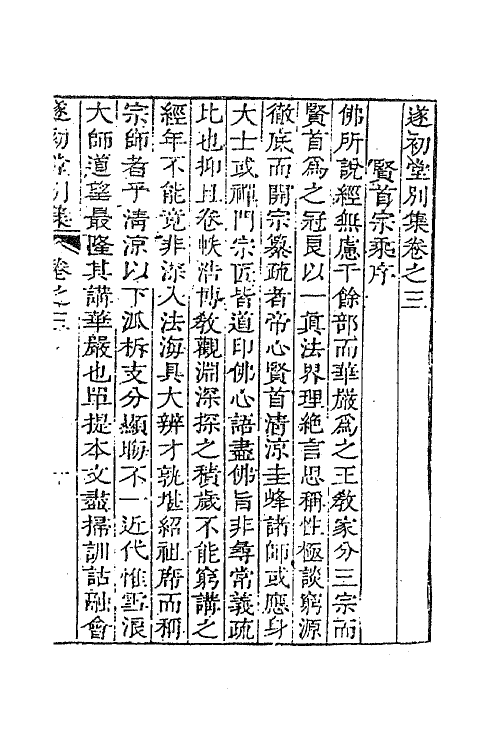 遂初堂別集卷之三
賢首宗乘序
佛所說經無慮千餘部而華嚴爲之王敎家分三宗而
賢首爲之冠良以一眞法界理絶言思稱性極談窮源
徹底而開宗纂疏者帝心賢首清涼圭峰諸師或應身
大士或禪門宗匠皆道印佛心語盡佛旨非尋常義疏
比也抑且卷帙浩博敎觀淵深探之積歲不能窮講之
經年不能竟非深入法海具大辨才孰堪紹祖席而稱
宗師者乎清涼以下派析支分顯晦不一近代惟雪浪
大師道望最隆其講華嚴也單提本文盡掃訓詁融會
遂初堂別集 卷之三 十